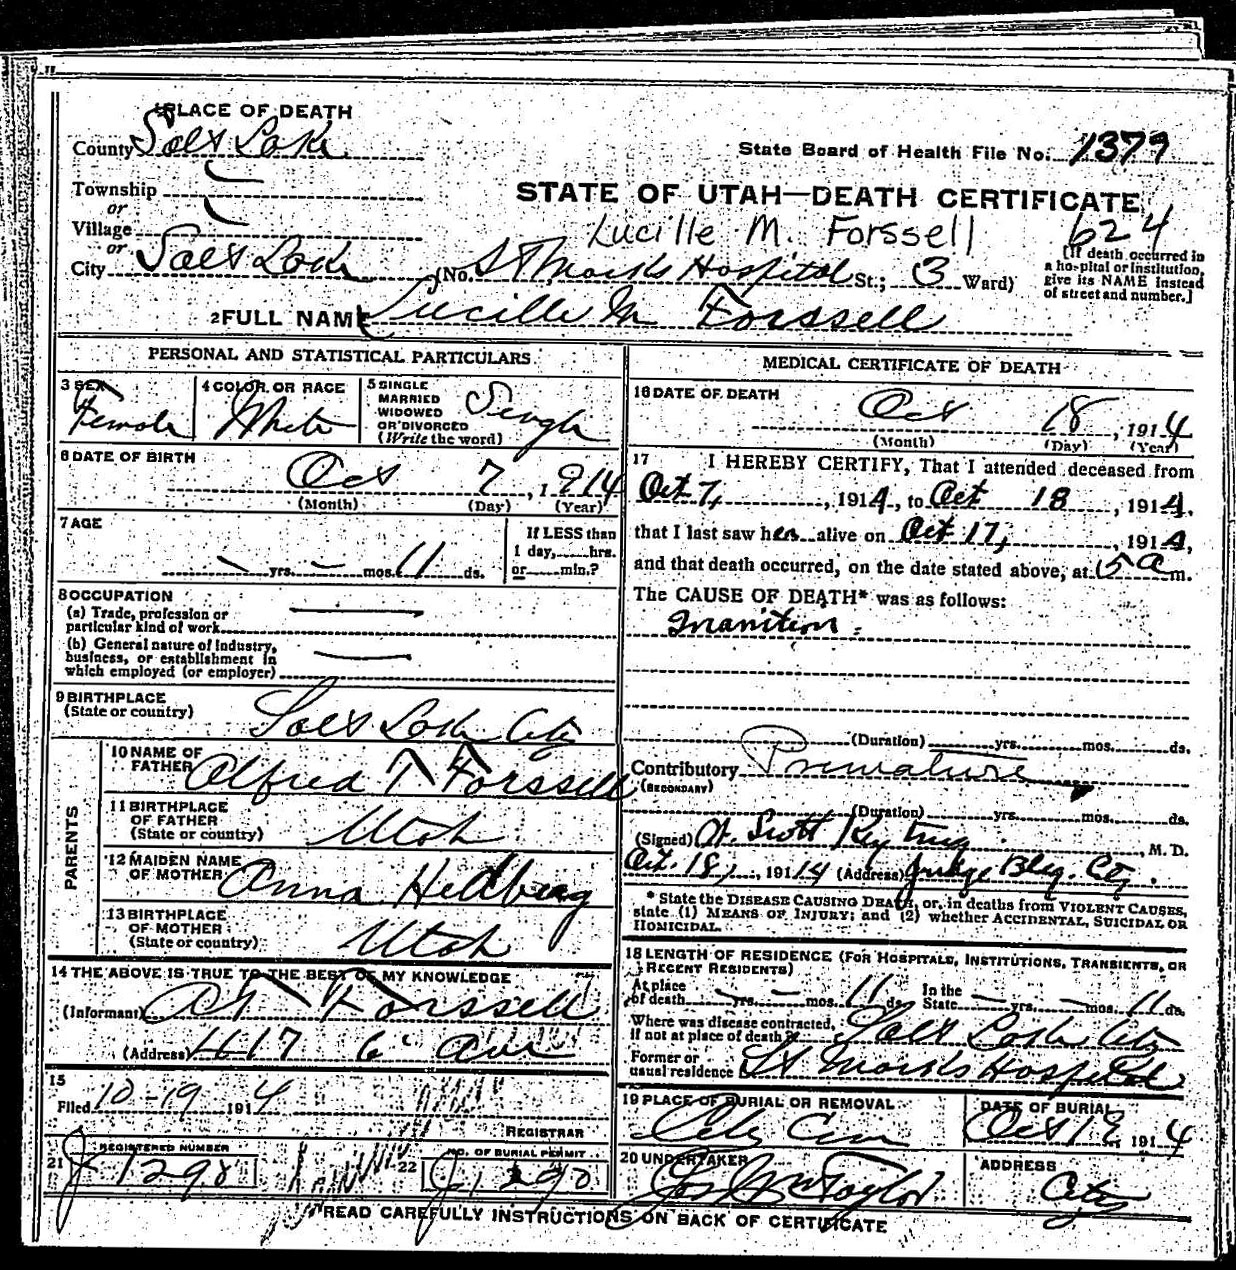 1 PLACE OF DEATH
County Salt Lake
State Board of Health File No. 1379
Township
or
Village
or
City Salt Lake
STATE OF UTAH—DEATH CERTIFICATE
Lucille M. Forssell
624
(No. St Marks Hospital St.; 3 Ward)
[If death occurred in
a hospital or institution,
give its NAME instead
of street and number.]
2 FULL NAME Lucille M Forssell
PERSONAL AND STATISTICAL PARTICULARS
3 SEX Female
4 COLOR OR RACE White
5 SINGLE
MARRIED
WIDOWED
OR DIVORCED
(Write the word) Single
6 DATE OF BIRTH
Oct 7, 1914
(Month) (Day) (Year)
7 AGE
— yrs. — mos. 11 ds.
If LESS than
1 day, hrs.
or min.?
8 OCCUPATION
(a) Trade, profession or
particular kind of work
(b) General nature of industry,
business, or establishment in
which employed (or employer)
9 BIRTHPLACE
(State or country) Salt Lake City
PARENTS
10 NAME OF
FATHER Alfred T Forssell
11 BIRTHPLACE
OF FATHER
(State or country) Utah
12 MAIDEN NAME
OF MOTHER Anna Hedberg
13 BIRTHPLACE
OF MOTHER
(State or country) Utah
14 THE ABOVE IS TRUE TO THE BEST OF MY KNOWLEDGE
(Informant) A T Forssell
(Address) 1117 6 Ave
15
Filed 10-19 1914
REGISTRAR
REGISTERED NUMBER
21 J 1298
22 NO. OF BURIAL PERMIT
J 1290
MEDICAL CERTIFICATE OF DEATH
16 DATE OF DEATH
Oct 18, 1914
(Month) (Day) (Year)
17 I HEREBY CERTIFY, That I attended deceased from
Oct 7, 1914, to Oct 18, 1914,
that I last saw her alive on Oct 17, 1914,
and that death occurred, on the date stated above, at 5 a m.
The CAUSE OF DEATH* was as follows:
Inanition
(Duration) yrs. mos. ds.
Contributory Premature
(SECONDARY)
(Duration) yrs. mos. ds.
(Signed) Scott M. D.
Oct. 18, 1914 (Address) Judge Bldg. Cty.
* State the DISEASE CAUSING DEATH, or, in deaths from VIOLENT CAUSES,
state (1) MEANS OF INJURY; and (2) whether ACCIDENTAL, SUICIDAL OR
HOMICIDAL.
18 LENGTH OF RESIDENCE (FOR HOSPITALS, INSTITUTIONS, TRANSIENTS, OR
RECENT RESIDENTS)
At place
of death — yrs. — mos. 11 ds.
In the
State — yrs. — mos. 11 ds.
Where was disease contracted,
if not at place of death? Salt Lake City
Former or
usual residence St Marks Hospital
19 PLACE OF BURIAL OR REMOVAL
City Cem
DATE OF BURIAL
Oct 19, 1914
20 UNDERTAKER
Jos Wm Taylor
ADDRESS
City
READ CAREFULLY INSTRUCTIONS ON BACK OF CERTIFICATE